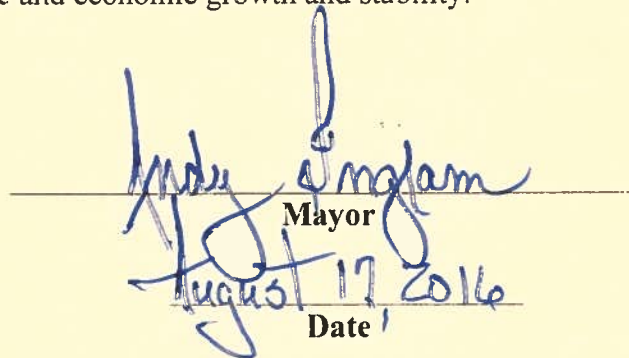 and economic growth and stability.
Andy Ingham
Mayor
August 17, 2016
Date